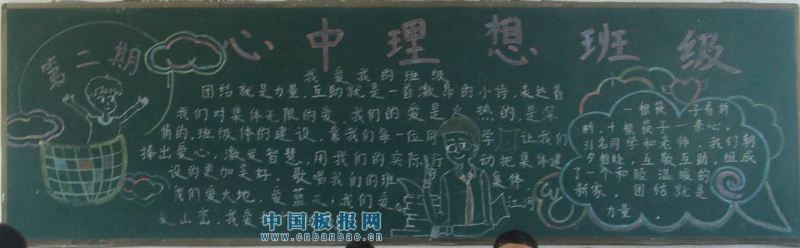 第二期
心中理想班级
我爱我的班级
团结就是力量,互助就是一首激昂的小诗,表达着
我们对集体无限的爱,我们的爱是火热的,是深
情的,班级体的建设,靠我们每一位同学 让我们
捧出爱心,激发智慧,用我们的实际行动把集体建
设的更加美好。歌唱我们的班集体,
我们爱大地,爱蓝天,我们爱江河
爱山峦,我爱
一根筷子易折
断,十根筷子一条心。
31名同学和老师,我们朝
夕相处,互敬互助,组成
了一个和睦温暖的
新家。团结就是
力量。
中国板报网
www.cnbanbao.cn